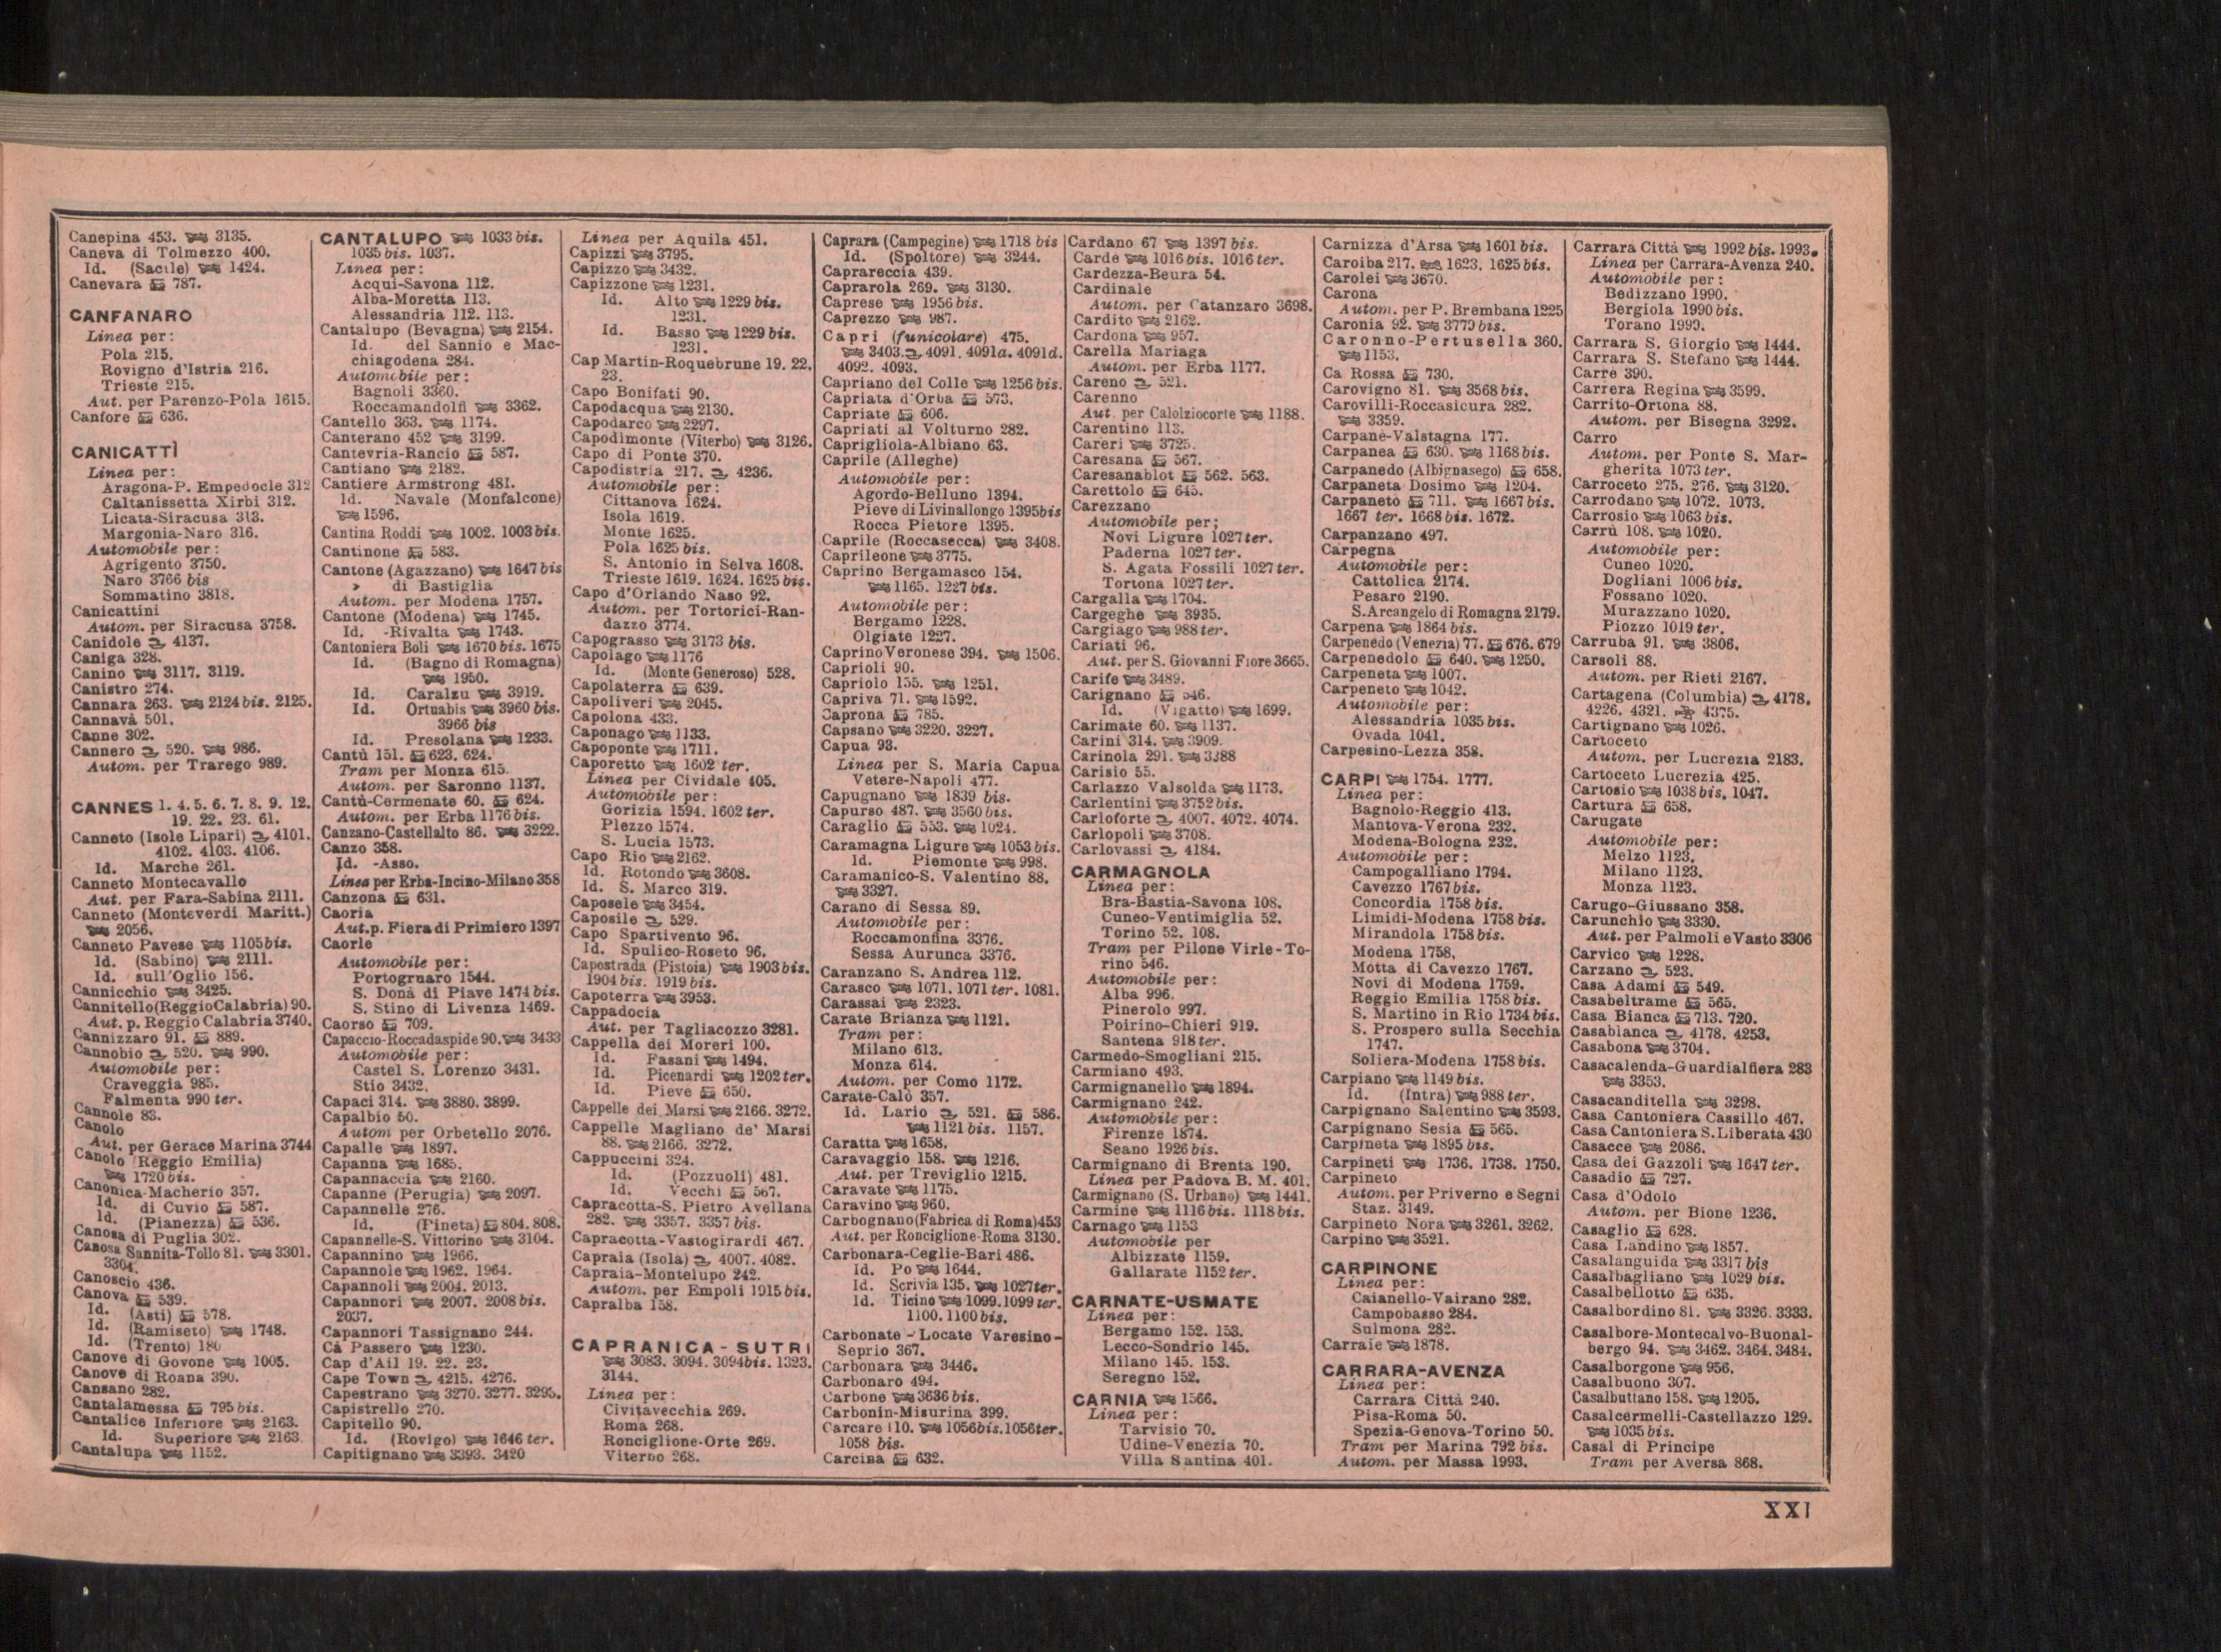 Canepina 453. 3135.
Caneva di Tolmezzo 400.
Id. (Sacile) 1424.
Canevara 787.
CANFANARO
Linea per:
Pola 215.
Rovigno d'Istria 216.
Trieste 215.
Aut. per Parenzo-Pola 1615.
Canfore 636.
CANICATTÌ
Linea per:
Aragona-P. Empedocle 312
Caltanissetta Xirbi 312.
Licata-Siracusa 313.
Margonia-Naro 316.
Automobile per:
Agrigento 3750.
Naro 3766 bis
Sommatino 3818.
Canicattini
Autom. per Siracusa 3758.
Canidole 4137.
Caniga 328.
Canino 3117. 3119.
Canistro 274.
Cannara 263. 2124 bis. 2125.
Cannavà 501.
Canne 302.
Cannero 520. 986.
Autom. per Trarego 989.
CANNES 1. 4. 5. 6. 7. 8. 9. 12.
19. 22. 23. 61.
Canneto (Isole Lipari) 4101.
4102. 4103. 4106.
Id. Marche 261.
Canneto Montecavallo
Aut. per Fara-Sabina 2111.
Canneto (Monteverdi Maritt.)
2056.
Canneto Pavese 1105 bis.
Id. (Sabino) 2111.
Id. sull'Oglio 156.
Cannicchio 3425.
Cannitello (Reggio Calabria) 90.
Aut. p. Reggio Calabria 3740.
Cannizzaro 91. 889.
Cannobio 520. 990.
Automobile per:
Craveggia 985.
Falmenta 990 ter.
Cannole 83.
Canolo
Aut. per Gerace Marina 3744
Canolo (Reggio Emilia)
1720 bis.
Canonica-Macherio 357.
Id. di Cuvio 587.
Id. (Pianezza) 536.
Canosa di Puglia 302.
Canosa Sannita-Tollo 81. 3301.
3304.
Canoscio 436.
Canova 539.
Id. (Asti) 578.
Id. (Ramiseto) 1748.
Id. (Trento) 180
Canove di Govone 1005.
Canove di Roana 390.
Cansano 282.
Cantalamessa 795 bis.
Cantalice Inferiore 2163.
Id. Superiore 2163.
Cantalupa 1152.
CANTALUPO 1033 bis.
1035 bis. 1037.
Linea per:
Acqui-Savona 112.
Alba-Moretta 113.
Alessandria 112. 113.
Cantalupo (Bevagna) 2154.
Id. del Sannio e Mac-
chiagodena 284.
Automobile per:
Bagnoli 3360.
Roccamandolfi 3362.
Cantello 363. 1174.
Canterano 452 3199.
Cantevria-Rancio 587.
Cantiano 2182.
Cantiere Armstrong 481.
Id. Navale (Monfalcone)
1596.
Cantina Roddi 1002. 1003 bis.
Cantinone 583.
Cantone (Agazzano) 1647 bis
» di Bastiglia
Autom. per Modena 1757.
Cantone (Modena) 1745.
Id. -Rivalta 1743.
Cantoniera Boli 1670 bis. 1675
Id. (Bagno di Romagna)
1950.
Id. Caralzu 3919.
Id. Ortuabis 3960 bis.
3966 bis
Id. Presolana 1233.
Cantù 151. 623. 624.
Tram per Monza 615.
Autom. per Saronno 1137.
Cantù-Cermenate 60. 624.
Autom. per Erba 1176 bis.
Canzano-Castellalto 86. 3222.
Canzo 358.
Id. -Asso.
Linea per Erba-Incino-Milano 358
Canzona 631.
Caoria
Aut. p. Fiera di Primiero 1397
Caorle
Automobile per:
Portogruaro 1544.
S. Donà di Piave 1474 bis.
S. Stino di Livenza 1469.
Caorso 709.
Capaccio-Roccadaspide 90. 3433
Automobile per:
Castel S. Lorenzo 3431.
Stio 3432.
Capaci 314. 3880. 3899.
Capalbio 50.
Autom per Orbetello 2076.
Capalle 1897.
Capanna 1685.
Capannaccia 2160.
Capanne (Perugia) 2097.
Capannelle 276.
Id. (Pineta) 804. 808.
Capannelle-S. Vittorino 3104.
Capannino 1966.
Capannole 1962. 1964.
Capannoli 2004. 2013.
Capannori 2007. 2008 bis.
2037.
Capannori Tassignano 244.
Cà Passero 1230.
Cap d'Ail 19. 22. 23.
Cape Town 4215. 4276.
Capestrano 3270. 3277. 3295.
Capistrello 270.
Capitello 90.
Id. (Rovigo) 1646 ter.
Capitignano 3393. 3420
Linea per Aquila 451.
Capizzi 3795.
Capizzo 3432.
Capizzone 1231.
Id. Alto 1229 bis.
1231.
Id. Basso 1229 bis.
1231.
Cap Martin-Roquebrune 19. 22.
23.
Capo Bonifati 90.
Capodacqua 2130.
Capodarco 2297.
Capodimonte (Viterbo) 3126.
Capo di Ponte 370.
Capodistria 217. 4236.
Automobile per:
Cittanova 1624.
Isola 1619.
Monte 1625.
Pola 1625 bis.
S. Antonio in Selva 1608.
Trieste 1619. 1624. 1625 bis.
Capo d'Orlando Naso 92.
Autom. per Tortorici-Ran-
dazzo 3774.
Capograsso 3173 bis.
Capolago 1176
Id. (Monte Generoso) 528.
Capolaterra 639.
Capoliveri 2045.
Capolona 433.
Caponago 1133.
Capoponte 1711.
Caporetto 1602 ter.
Linea per Cividale 405.
Automobile per:
Gorizia 1594. 1602 ter.
Plezzo 1574.
S. Lucia 1573.
Capo Rio 2162.
Id. Rotondo 3608.
Id. S. Marco 319.
Caposele 3454.
Caposile 529.
Capo Spartivento 96.
Id. Spulico-Roseto 96.
Capostrada (Pistoia) 1903 bis.
1904 bis. 1919 bis.
Capoterra 3953.
Cappadocia
Aut. per Tagliacozzo 3281.
Cappella dei Moreri 100.
Id. Fasani 1494.
Id. Picenardi 1202 ter.
Id. Pieve 650.
Cappelle dei Marsi 2166. 3272.
Cappelle Magliano de' Marsi
88. 2166. 3272.
Cappuccini 324.
Id. (Pozzuoli) 481.
Id. Vecchi 567.
Capracotta-S. Pietro Avellana
282. 3357. 3357 bis.
Capracotta-Vastogirardi 467.
Capraia (Isola) 4007. 4082.
Capraia-Montelupo 242.
Autom. per Empoli 1915 bis.
Capralba 158.
CAPRANICA-SUTRI
3083. 3094. 3094 bis. 1323.
3144.
Linea per:
Civitavecchia 269.
Roma 268.
Ronciglione-Orte 269.
Viterbo 268.
Caprara (Campegine) 1718 bis
Id. (Spoltore) 3244.
Caprareccia 439.
Caprarola 269. 3130.
Caprese 1956 bis.
Caprezzo 987.
Capri (funicolare) 475.
3403. 4091. 4091a. 4091d.
4092. 4093.
Capriano del Colle 1256 bis.
Capriata d'Orba 573.
Capriate 606.
Capriati al Volturno 282.
Caprigliola-Albiano 63.
Caprile (Alleghe)
Automobile per:
Agordo-Belluno 1394.
Pieve di Livinallongo 1395 bis
Rocca Pietore 1395.
Caprile (Roccasecca) 3408.
Caprileone 3775.
Caprino Bergamasco 154.
1165. 1227 bis.
Automobile per:
Bergamo 1228.
Olgiate 1227.
Caprino Veronese 394. 1506.
Caprioli 90.
Capriolo 155. 1251.
Capriva 71. 1592.
Caprona 785.
Capsano 3220. 3227.
Capua 93.
Linea per S. Maria Capua
Vetere-Napoli 477.
Capugnano 1839 bis.
Capurso 487. 3560 bis.
Caraglio 553. 1024.
Caramagna Ligure 1053 bis.
Id. Piemonte 998.
Caramanico-S. Valentino 88.
3327.
Carano di Sessa 89.
Automobile per:
Roccamonfina 3376.
Sessa Aurunca 3376.
Caranzano S. Andrea 112.
Carasco 1071. 1071 ter. 1081.
Carassai 2323.
Carate Brianza 1121.
Tram per:
Milano 613.
Monza 614.
Autom. per Como 1172.
Carate-Calò 357.
Id. Lario 521. 586.
1121 bis. 1157.
Caratta 1658.
Caravaggio 158. 1216.
Aut. per Treviglio 1215.
Caravate 1175.
Caravino 960.
Carbognano (Fabrica di Roma) 453
Aut. per Ronciglione-Roma 3130.
Carbonara-Ceglie-Bari 486.
Id. Po 1644.
Id. Scrivia 135. 1027 ter.
Id. Ticino 1099. 1099 ter.
1100. 1100 bis.
Carbonate-Locate Varesino-
Seprio 367.
Carbonara 3446.
Carbonaro 494.
Carbone 3636 bis.
Carbonin-Misurina 399.
Carcare 110. 1056 bis. 1056 ter.
1058 bis.
Carcina 632.
Cardano 67 1397 bis.
Cardè 1016 bis. 1016 ter.
Cardezza-Beura 54.
Cardinale
Autom. per Catanzaro 3698.
Cardito 2162.
Cardona 957.
Carella Mariaga
Autom. per Erba 1177.
Careno 521.
Carenno
Aut. per Calolziocorte 1188.
Carentino 113.
Careri 3725.
Caresana 567.
Caresanablot 562. 563.
Carettolo 645.
Carezzano
Automobile per;
Novi Ligure 1027 ter.
Paderna 1027 ter.
S. Agata Fossili 1027 ter.
Tortona 1027 ter.
Cargalla 1704.
Cargeghe 3935.
Cargiago 988 ter.
Cariati 96.
Aut. per S. Giovanni Fiore 3665.
Carife 3489.
Carignano 546.
Id. (Vigatto) 1699.
Carimate 60. 1137.
Carini 314. 3909.
Carinola 291. 3388
Carisio 55.
Carlazzo Valsolda 1173.
Carlentini 3752 bis.
Carloforte 4007. 4072. 4074.
Carlopoli 3708.
Carlovassi 4184.
CARMAGNOLA
Linea per:
Bra-Bastia-Savona 108.
Cuneo-Ventimiglia 52.
Torino 52. 108.
Tram per Pilone Virle-To-
rino 546.
Automobile per:
Alba 996.
Pinerolo 997.
Poirino-Chieri 919.
Santena 918 ter.
Carmedo-Smogliani 215.
Carmiano 493.
Carmignanello 1894.
Carmignano 242.
Automobile per:
Firenze 1874.
Seano 1926 bis.
Carmignano di Brenta 190.
Linea per Padova B. M. 401.
Carmignano (S. Urbano) 1441.
Carmine 1116 bis. 1118 bis.
Carnago 1153
Automobile per
Albizzate 1159.
Gallarate 1152 ter.
CARNATE-USMATE
Linea per:
Bergamo 152. 153.
Lecco-Sondrio 145.
Milano 145. 153.
Seregno 152.
CARNIA 1566.
Linea per:
Tarvisio 70.
Udine-Venezia 70.
Villa Santina 401.
Carnizza d'Arsa 1601 bis.
Caroiba 217. 1623. 1625 bis.
Carolei 3670.
Carona
Autom. per P. Brembana 1225
Caronia 92. 3779 bis.
Caronno-Pertusella 360.
1153.
Ca Rossa 730.
Carovigno 81. 3568 bis.
Carovilli-Roccasicura 282.
3359.
Carpanè-Valstagna 177.
Carpanea 630. 1168 bis.
Carpanedo (Albignasego) 658.
Carpaneta Dosimo 1204.
Carpaneto 711. 1667 bis.
1667 ter. 1668 bis. 1672.
Carpanzano 497.
Carpegna
Automobile per:
Cattolica 2174.
Pesaro 2190.
S. Arcangelo di Romagna 2179.
Carpena 1864 bis.
Carpenedo (Venezia) 77. 676. 679
Carpenedolo 640. 1250.
Carpeneta 1007.
Carpeneto 1042.
Automobile per:
Alessandria 1035 bis.
Ovada 1041.
Carpesino-Lezza 358.
CARPI 1754. 1777.
Linea per:
Bagnolo-Reggio 413.
Mantova-Verona 232.
Modena-Bologna 232.
Automobile per:
Campogalliano 1794.
Cavezzo 1767 bis.
Concordia 1758 bis.
Limidi-Modena 1758 bis.
Mirandola 1758 bis.
Modena 1758.
Motta di Cavezzo 1767.
Novi di Modena 1759.
Reggio Emilia 1758 bis.
S. Martino in Rio 1734 bis.
S. Prospero sulla Secchia
1747.
Soliera-Modena 1758 bis.
Carpiano 1149 bis.
Id. (Intra) 988 ter.
Carpignano Salentino 3593.
Carpignano Sesia 565.
Carpineta 1895 bis.
Carpineti 1736. 1738. 1750.
Carpineto
Autom. per Priverno e Segni
Staz. 3149.
Carpineto Nora 3261. 3262.
Carpino 3521.
CARPINONE
Linea per:
Caianello-Vairano 282.
Campobasso 284.
Sulmona 282.
Carraie 1878.
CARRARA-AVENZA
Linea per:
Carrara Città 240.
Pisa-Roma 50.
Spezia-Genova-Torino 50.
Tram per Marina 792 bis.
Autom. per Massa 1993.
Carrara Città 1992 bis. 1993.
Linea per Carrara-Avenza 240.
Automobile per:
Bedizzano 1990.
Bergiola 1990 bis.
Torano 1990.
Carrara S. Giorgio 1444.
Carrara S. Stefano 1444.
Carrè 390.
Carrera Regina 3599.
Carrito-Ortona 88.
Autom. per Bisegna 3292.
Carro
Autom. per Ponte S. Mar-
gherita 1073 ter.
Carroceto 275. 276. 3120.
Carrodano 1072. 1073.
Carrosio 1063 bis.
Carrù 108. 1020.
Automobile per:
Cuneo 1020.
Dogliani 1006 bis.
Fossano 1020.
Murazzano 1020.
Piozzo 1019 ter.
Carruba 91. 3806.
Carsoli 88.
Autom. per Rieti 2167.
Cartagena (Columbia) 4178.
4226. 4321. 4375.
Cartignano 1026.
Cartoceto
Autom. per Lucrezia 2183.
Cartoceto Lucrezia 425.
Cartosio 1038 bis. 1047.
Cartura 658.
Carugate
Automobile per:
Melzo 1123.
Milano 1123.
Monza 1123.
Carugo-Giussano 358.
Carunchio 3330.
Aut. per Palmoli e Vasto 3306
Carvico 1228.
Carzano 523.
Casa Adami 549.
Casabeltrame 565.
Casa Bianca 713. 720.
Casabianca 4178. 4253.
Casabona 3704.
Casacalenda-Guardialfiera 283
3353.
Casacanditella 3298.
Casa Cantoniera Cassillo 467.
Casa Cantoniera S. Liberata 430
Casacce 2086.
Casa dei Gazzoli 1647 ter.
Casadio 727.
Casa d'Odolo
Autom. per Bione 1236.
Casaglio 628.
Casa Landino 1857.
Casalanguida 3317 bis
Casalbagliano 1029 bis.
Casalbellotto 635.
Casalbordino 81. 3326. 3333.
Casalbore-Montecalvo-Buonal-
bergo 94. 3462. 3464. 3484.
Casalborgone 956.
Casalbuono 307.
Casalbuttano 158. 1205.
Casalcermelli-Castellazzo 129.
1035 bis.
Casal di Principe
Tram per Aversa 868.
XXI